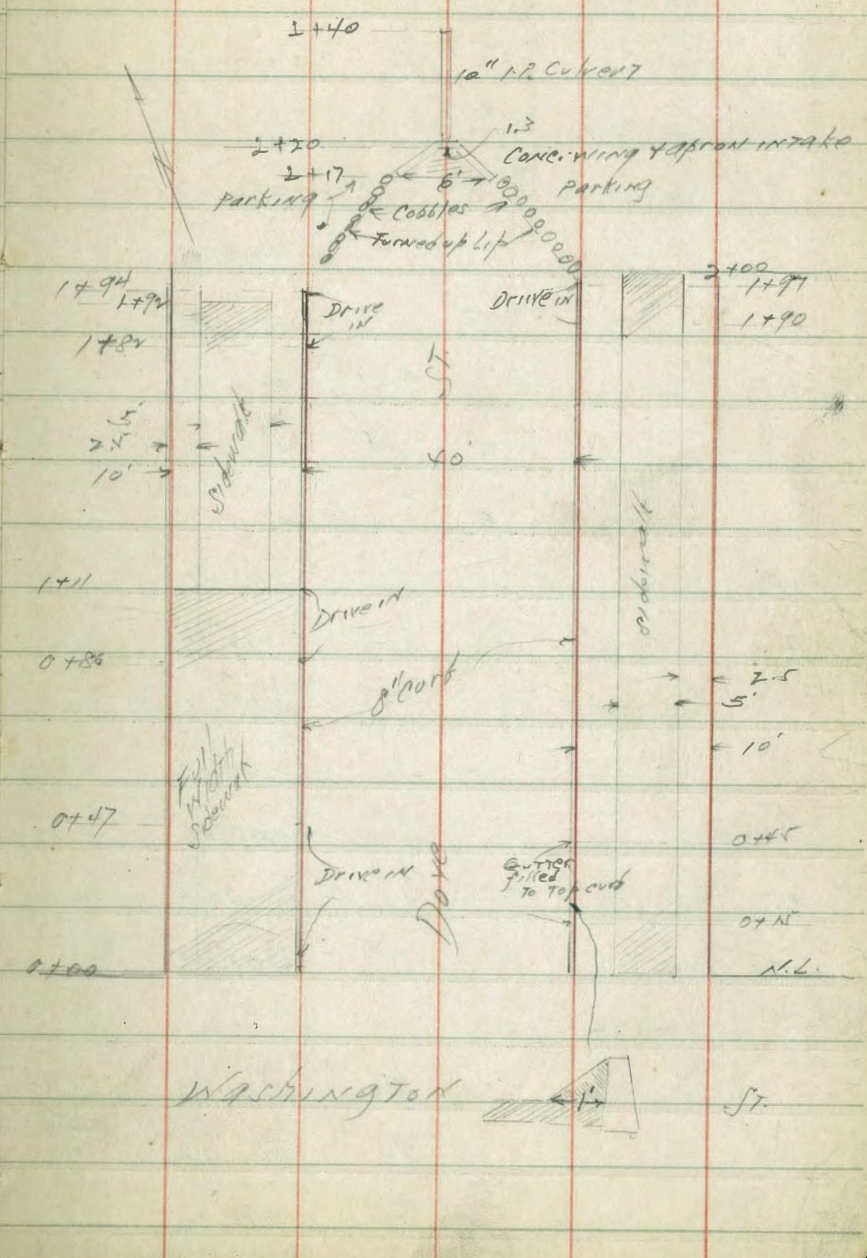 2+40
10" I.P. Culvert
1.3
2+20
Conc. wing & apron intake
2+17
6'
Parking
Parking
Cobbles
Turned up Lip
2+00
1+94
1+97
1+92
Drive
IN
Drive IN
1+90
1+82
ST.
Sidewalk
40'
10'
Sidewalk
1+11
Drive IN
0+86
8" Curb
2.5
5'
10'
Full
Width
Sidewalk
0+47
0+45
Drive IN
Dove
Gutter
filled
To Top curb
0+15
0+00
N.L.
Washington
1'
ST.